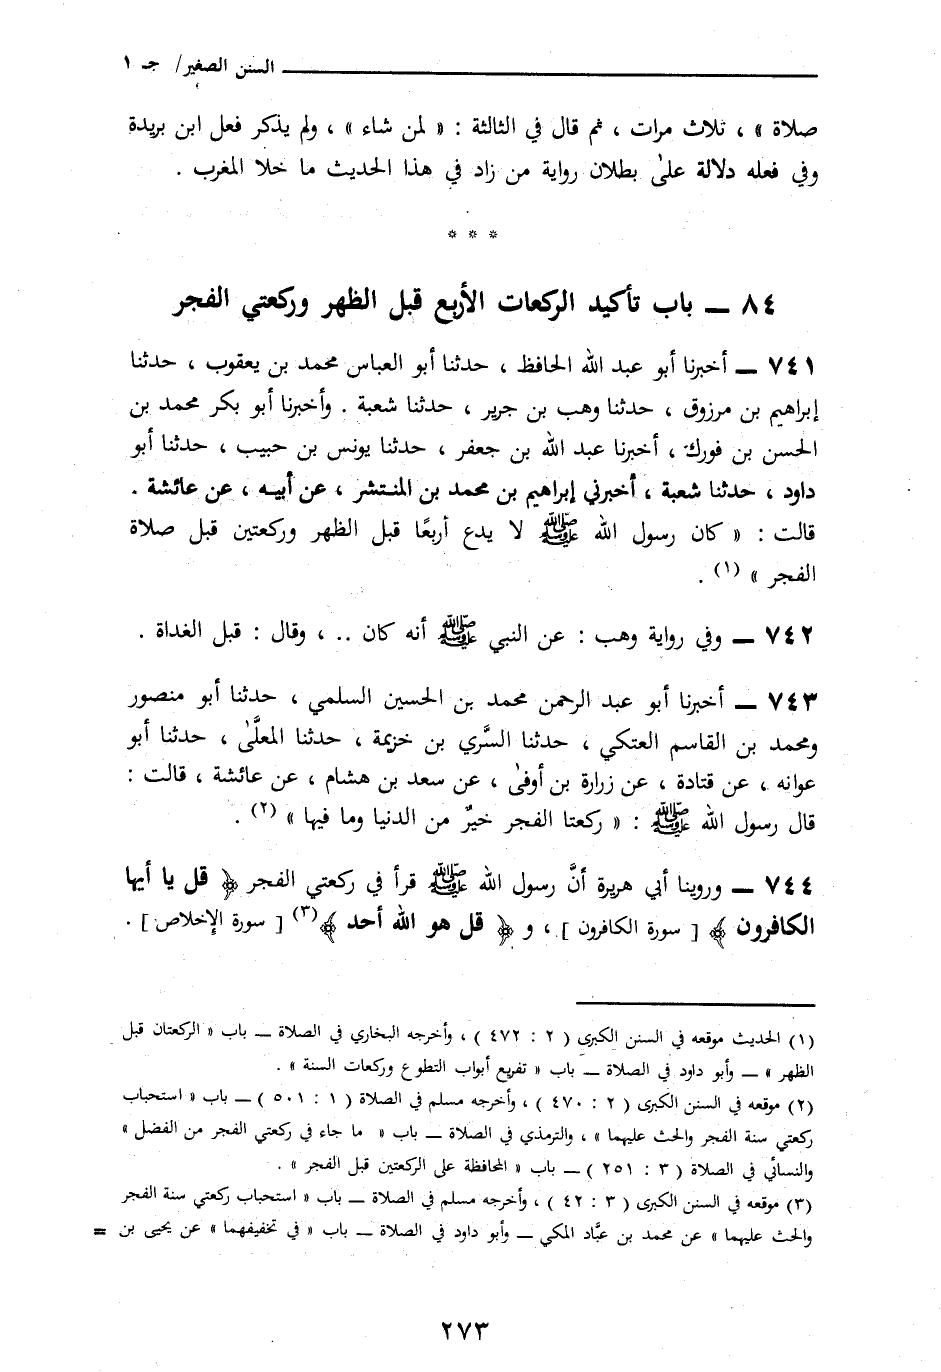 السنن الصغير/ جـ ١
صلاة » ، ثلاث مرات ، ثم قال في الثالثة : « لمن شاء » ، ولم يذكر فعل ابن بريدة
وفي فعله دلالة علىٰ بطلان رواية من زاد في هذا الحديث ما خلا المغرب .
* * *
٨٤ ــ باب تأكيد الركعات الأربع قبل الظهر وركعتي الفجر
٧٤١ ــ أخبرنا أبو عبد الله الحافظ ، حدثنا أبو العباس محمد بن يعقوب ، حدثنا
إبراهيم بن مرزوق ، حدثنا وهب بن جرير ، حدثنا شعبة . وأخبرنا أبو بكر محمد بن
الحسن بن فورك ، أخبرنا عبد الله بن جعفر ، حدثنا يونس بن حبيب ، حدثنا أبو
داود ، حدثنا شعبة ، أخبرني إبراهيم بن محمد بن المنتشر ، عن أبيه ، عن عائشة .
قالت : « كان رسول الله ﷺ لا يدع أربعًا قبل الظهر وركعتين قبل صلاة
الفجر » (١) .
٧٤٢ ــ وفي رواية وهب : عن النبي ﷺ أنه كان .. ، وقال : قبل الغداة .
٧٤٣ ــ أخبرنا أبو عبد الرحمن محمد بن الحسين السلمي ، حدثنا أبو منصور
ومحمد بن القاسم العتكي ، حدثنا السَّري بن خزيمة ، حدثنا المعلَّىٰ ، حدثنا أبو
عوانه ، عن قتادة ، عن زرارة بن أوفىٰ ، عن سعد بن هشام ، عن عائشة ، قالت :
قال رسول الله ﷺ : « ركعتا الفجر خيرٌ من الدنيا وما فيها » (٢) .
٧٤٤ ــ وروينا أبي هريرة أنَّ رسول الله ﷺ قرأ في ركعتي الفجر ﴿ قل يا أيها
الكافرون ﴾ [ سورة الكافرون ] ، و ﴿ قل هو الله أحد ﴾(٣) [ سورة الإخلاص ] .
(١) الحديث موقعه في السنن الكبرى ( ٢ : ٤٧٢ ) ، وأخرجه البخاري في الصلاة ــ باب « الركعتان قبل
الظهر » ــ وأبو داود في الصلاة ــ باب « تفريع أبواب التطوع وركعات السنة » .
(٢) موقعه في السنن الكبرى ( ٢ : ٤٧٠ ) ، وأخرجه مسلم في الصلاة ( ١ : ٥٠١ ) ــ باب « استحباب
ركعتي سنة الفجر والحث عليهما » ، والترمذي في الصلاة ــ باب « ما جاء في ركعتي الفجر من الفضل »
والنسائي في الصلاة ( ٣ : ٢٥١ ) ــ باب « المحافظة على الركعتين قبل الفجر » .
(٣) موقعه في السنن الكبرى ( ٣ : ٤٢ ) ، وأخرجه مسلم في الصلاة ــ باب « استحباب ركعتي سنة الفجر
والحث عليهما » عن محمد بن عبَّاد المكي ــ وأبو داود في الصلاة ــ باب « في تخفيفهما » عن يحيى بن =
٢٧٣